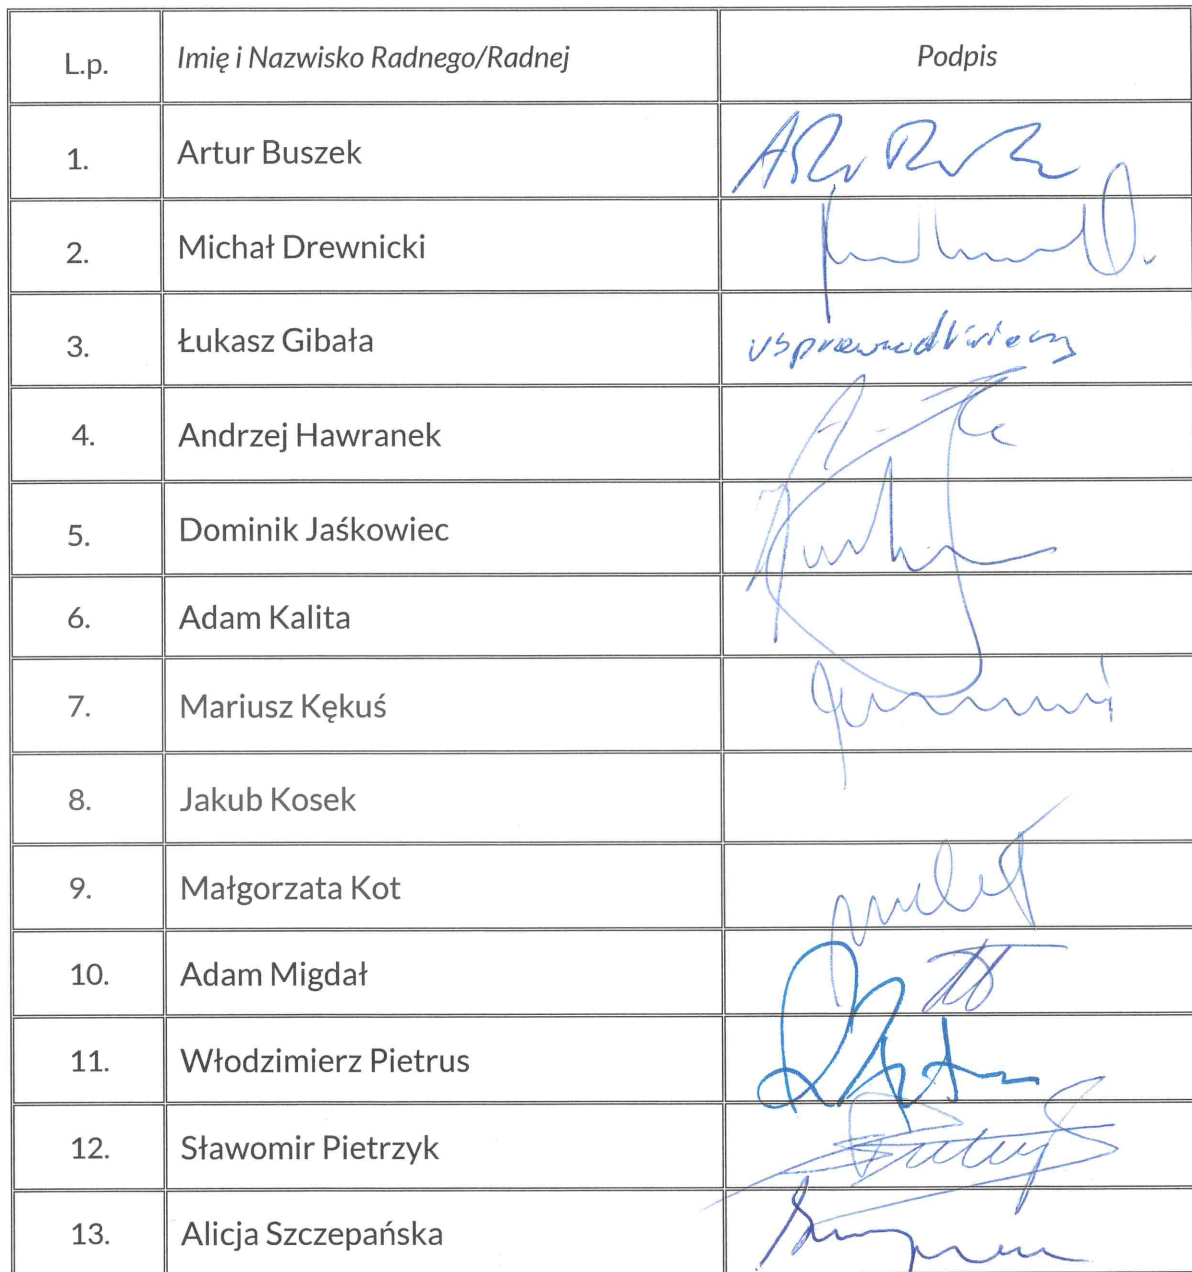 L.p. Imię i Nazwisko Radnego/Radnej Podpis
1. Artur Buszek
2. Michał Drewnicki
3. Łukasz Gibała usprawiedliwiony
4. Andrzej Hawranek
5. Dominik Jaśkowiec
6. Adam Kalita
7. Mariusz Kękuś
8. Jakub Kosek
9. Małgorzata Kot
10. Adam Migdał
11. Włodzimierz Pietrus
12. Sławomir Pietrzyk
13. Alicja Szczepańska